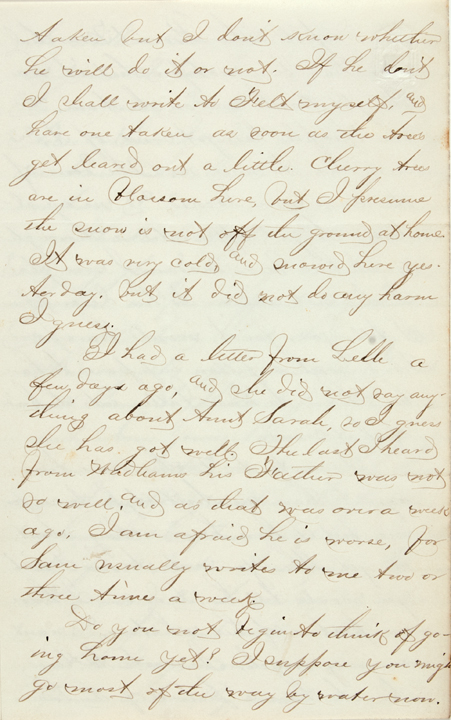 taken but I don't know whether
he will do it or not. If he don't
I shall write to Felt myself, and
have one taken as soon as the trees
get leaved out a little. Cherry trees
are in blossom here, but I presume
the snow is not off the ground at home.
It was very cold, and snowed here yes-
terday. but it did not do any harm
I guess.
I had a letter from Lelle a
few days ago, and she did not say any-
thing about Aunt Sarah, so I guess
she has got well. The last I heard
from Wadhams his Father was not
so well, and as that was over a week
ago, I am afraid he is worse, for
Sam usually writes to me two or
three time a week.
Do you not begin to think of go-
ing home yet? I suppose you might
go most of the way by water now.